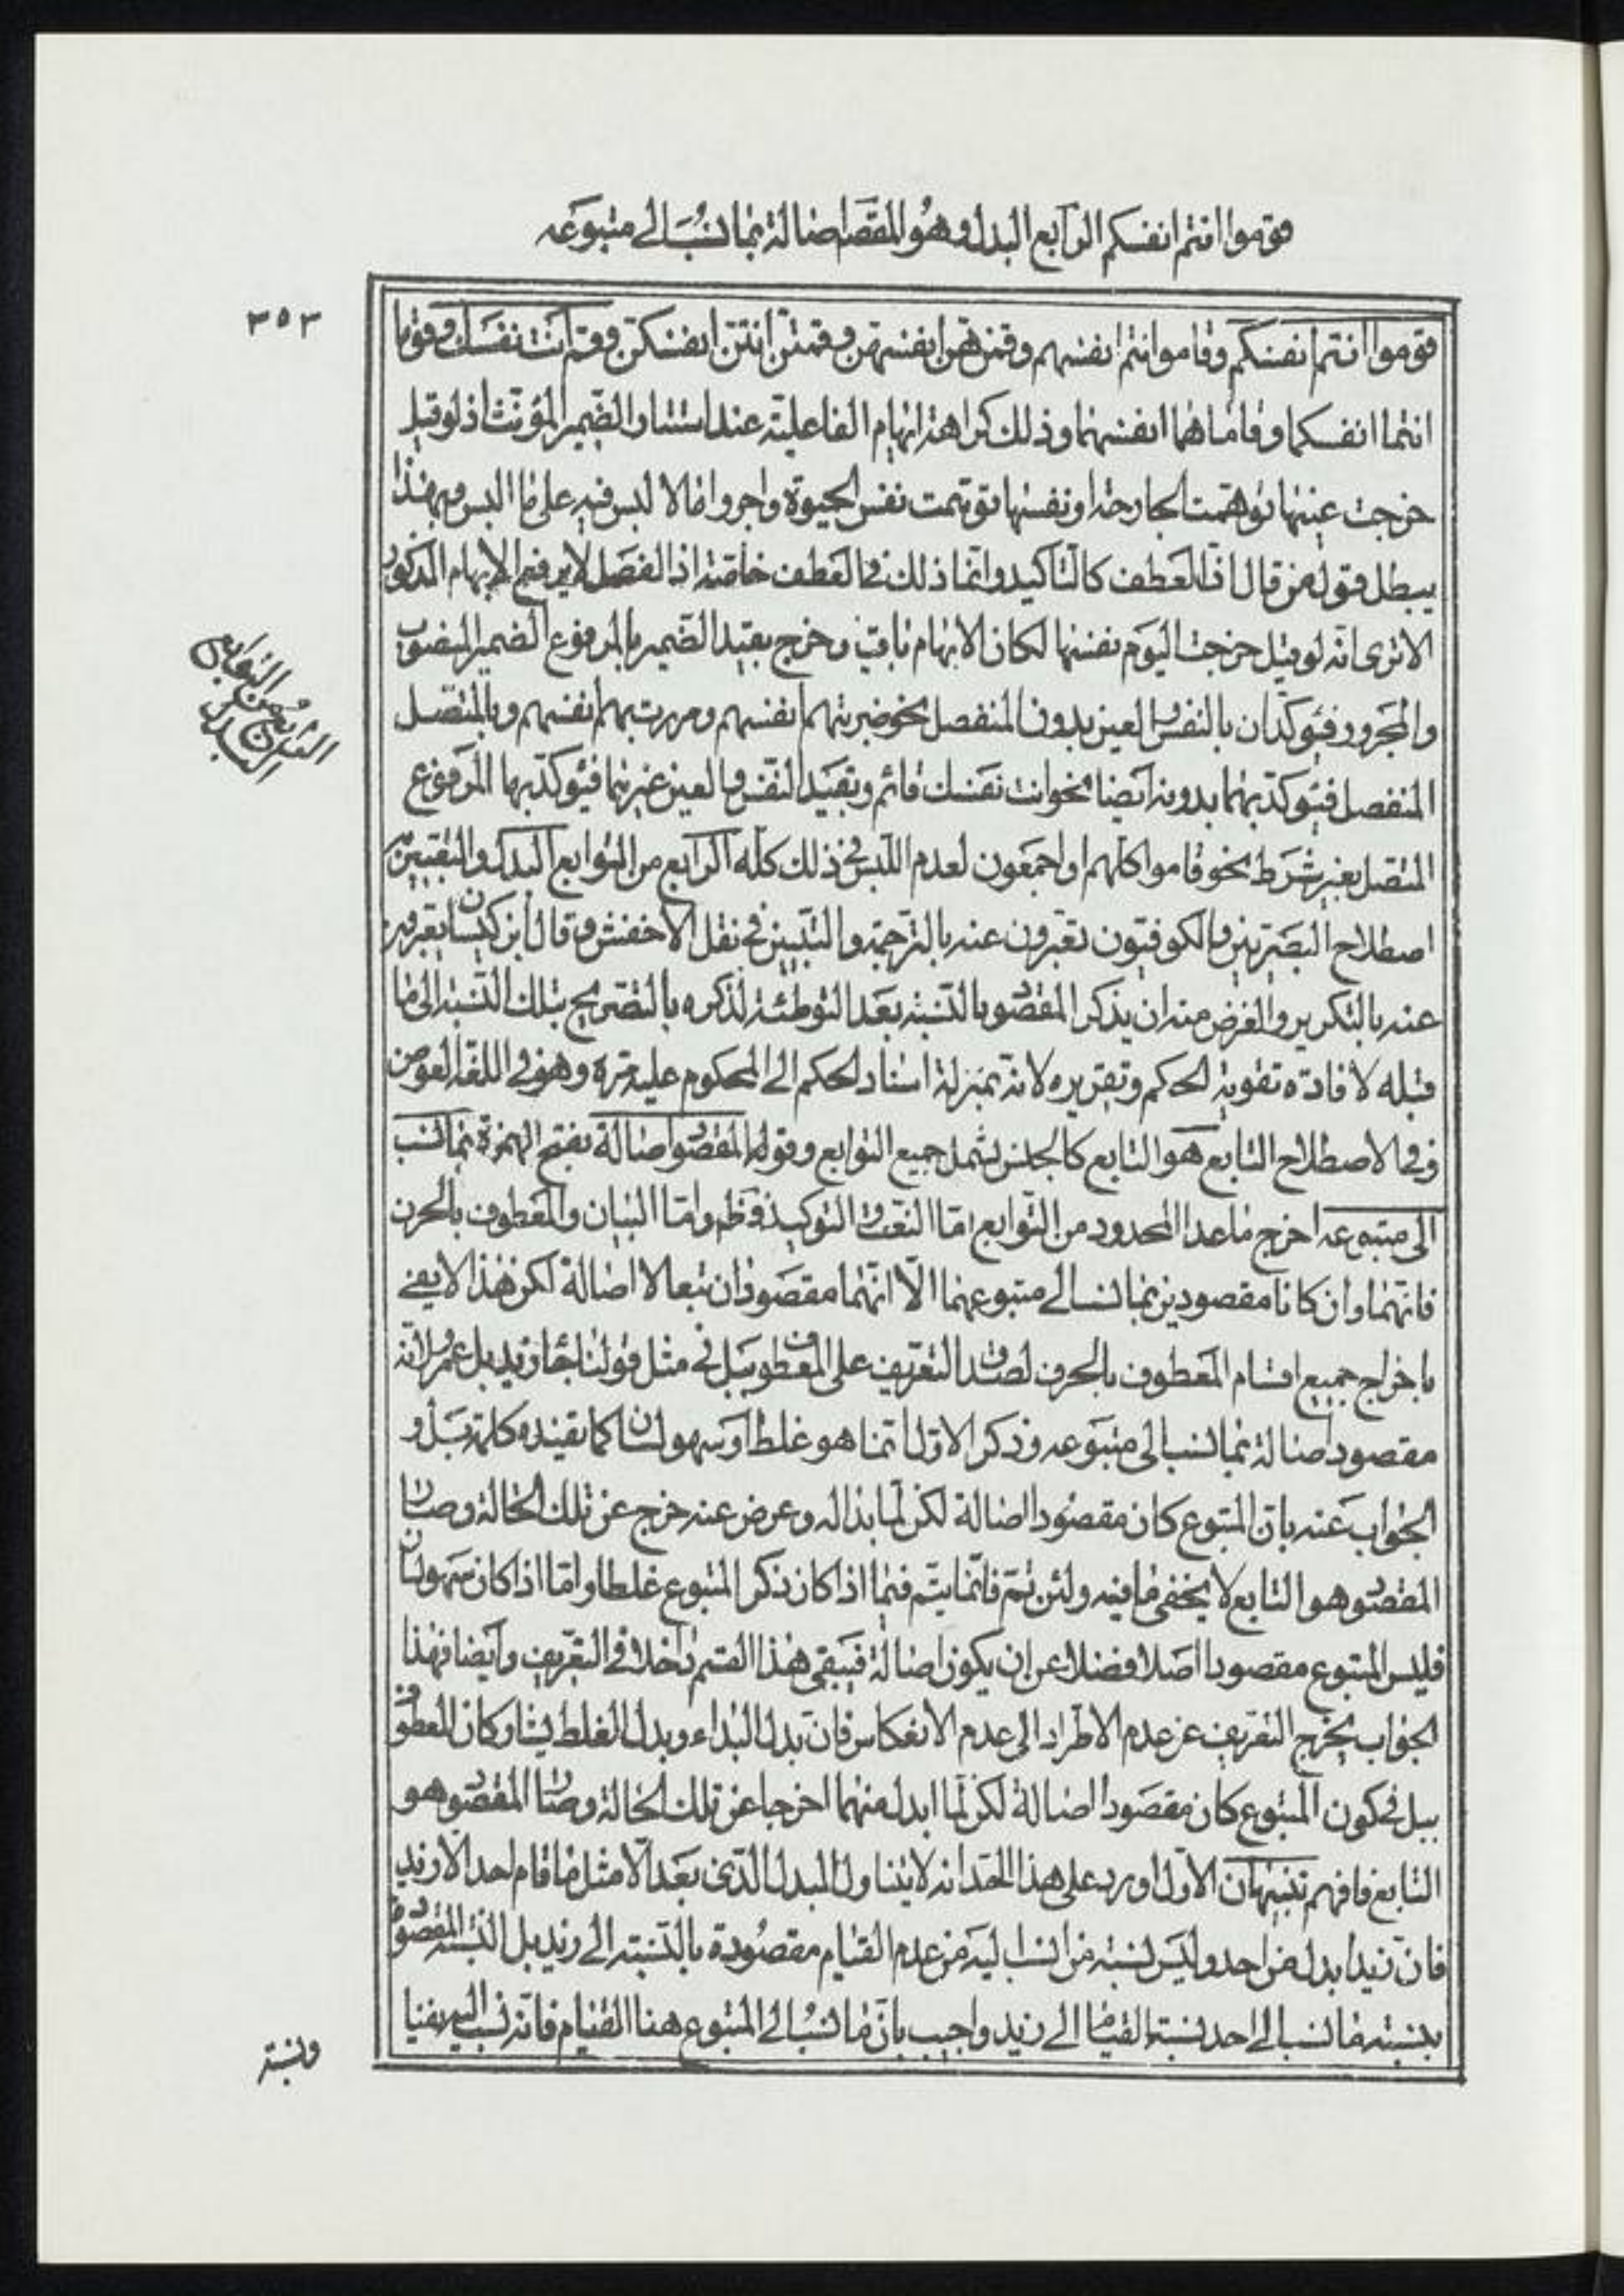 قوموا انتم انفسكم الرابع البدل وهو المقصود اصالة بما نسب الى متبوعه
٣٥٣
قوموا انتم انفسكم وقاموا هم انفسهم وقمن هن انفسهن وقمتن انتن انفسكن وقم انت نفسك وقوما
انتما انفسكما وقاما هما انفسهما وذلك كراهة ايهام الفاعلية عند استتار الضمير المؤنث اذ لو قيل
خرجت عينها توهمت الجارحة او نفسها توهمت نفس الحيوة واجروا ما لا لبس فيه على ما البس وبهذا
يبطل قول من قال ان العطف كالتأكيد وانما ذلك في العطف خاصة اذ الفصل لا يرفع الايهام المذكور
الا ترى انه لو قيل خرجت اليوم نفسها لكان الايهام باقيا وخرج بقيد الضمير بالمرفوع الضمير المنصوب
والمجرور فيؤكدان بالنفس والعين بدون المنفصل نحو ضربتهم انفسهم ومررت بهم انفسهم وبالمتصل
المنفصل فيؤكد بهما بدونه ايضا نحو انت نفسك قائم وبقيد النفس والعين غيرهما فيؤكد بها المرفوع
المتصل بغير شرط نحو قاموا كلهم او اجمعون لعدم اللبس في ذلك كله الرابع من التوابع البدل والتعبير به
اصطلاح البصريين والكوفيون يعبرون عنه بالترجمة والتبيين في نقل الاخفش وقال ابن كيسان يعبرون
عنه بالتكرير والغرض منه ان يذكر المقصود بالنسبة بعد التوطئة لذكره بالتصريح بتلك النسبة الى ما
قبله لافادة تقوية الحكم وتقريره لانه بمنزلة اسناد الحكم الى المحكوم عليه مرة وهو في اللغة العوض
وفي الاصطلاح التابع هو التابع كالجنس يشمل جميع التوابع وقوله المقصود اصالة بفتح الهمزة بما نسب
الى متبوعه اخرج ما عدا المحدود من التوابع اما النعت والتوكيد فظ واما البيان والمعطوف بالحرف
فانهما وان كانا مقصودين بما نسب الى متبوعهما الا انهما مقصودان تبعا لا اصالة لكن هذا لا يفي
باخراج جميع اقسام المعطوف بالحرف لصدق التعريف على المعطوف ببل في مثل قولنا جاء زيد بل عمرو لانه
مقصود اصالة بما نسب الى متبوعه وذكر الاول انما هو غلط او سهو لسان كما تفيده كلمة بل و
الجواب عنه بان المتبوع كان مقصودا اصالة لكن لما بدا له وعرض عنه خرج عن تلك الحالة وصار
المقصود هو التابع لا يخفى ما فيه ولئن تم فانما يتم فيما اذا كان ذكر المتبوع غلطا واما اذا كان سهو لسان
فليس المتبوع مقصودا اصلا فضلا عن ان يكون اصالة فيبقى هذا القسم داخلا في التعريف وايضا فهذا
الجواب يخرج التعريف عن عدم الاطراد الى عدم الانعكاس فان بدل البداء وبدل الغلط يشاركان المعطوف
ببل في كون المتبوع كان مقصودا اصالة لكن لما ابدل منهما اخرجا عن تلك الحالة وصار المقصود هو
التابع فافهم تنبيهان الاول اورد على هذا الحد انه لا يتناول البدل الذي بعد الا مثل ما قام احد الا زيد
فان زيدا بدل من احد وليس نسبة ما نسب اليه من عدم القيام مقصودة بالنسبة الى زيد بل النسبة المقصودة
بنسبة ما نسب الى احد نسبة القيام الى زيد واجيب بان ما نسب الى المتبوع ههنا القيام فانه نسب اليه نفيا
ونسبة